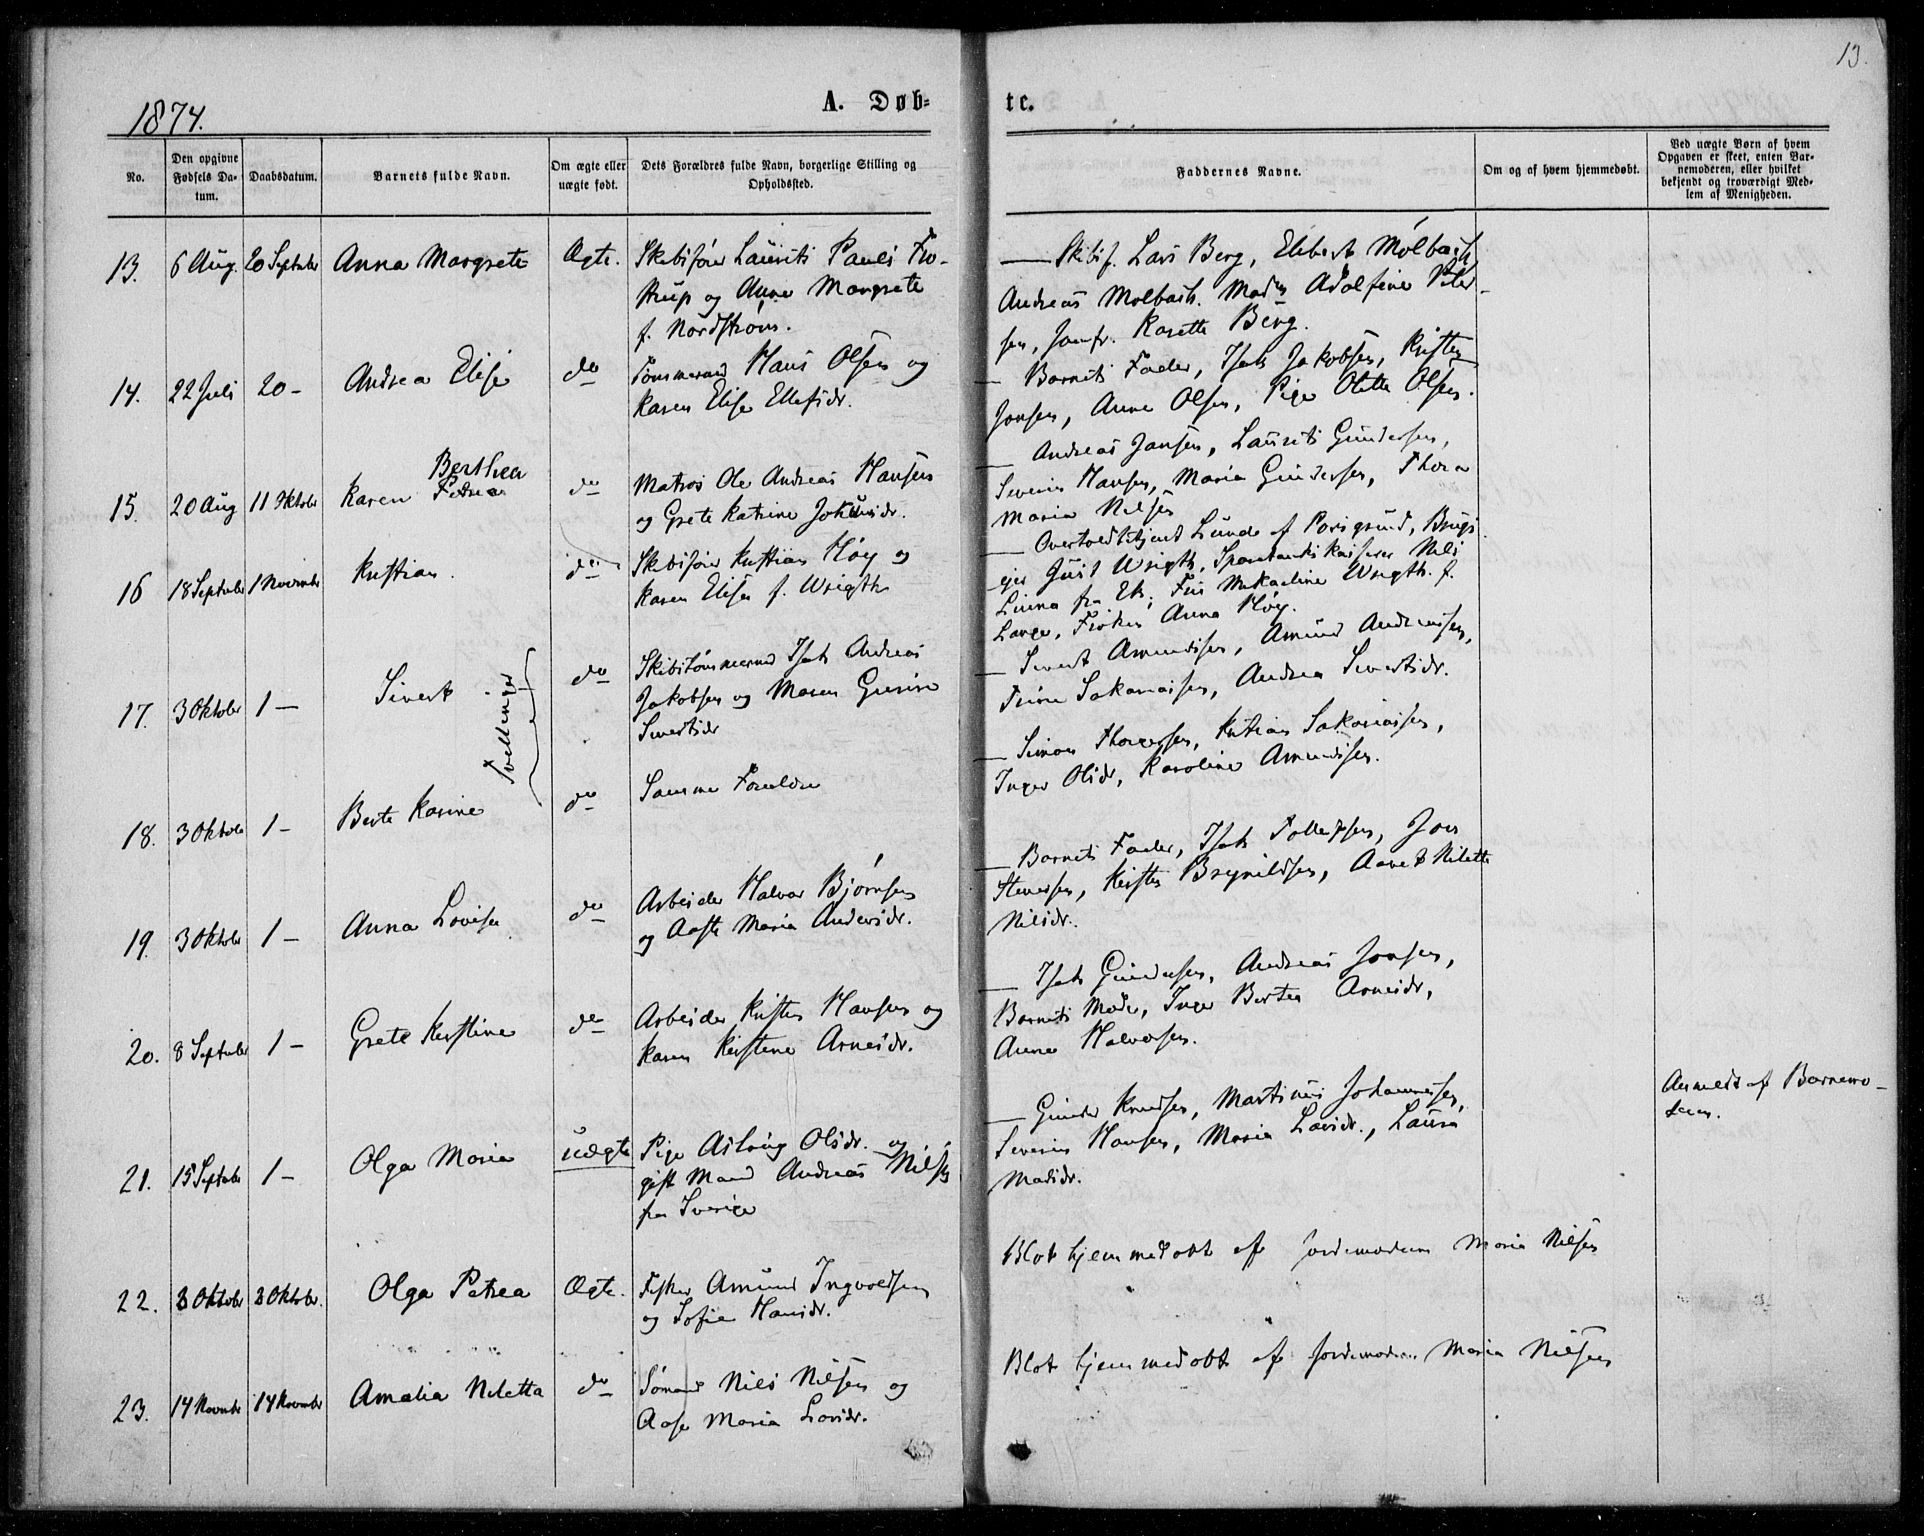 13.
1874.
A. Døb-
te.
No.
Den opgivne Fødsels Da-tum.
Daabsdatum.
Barnets fulde Navn.
Om ægte eller uægte født.
Dets Forældres fulde Navn, borgerlige Stilling og Opholdssted.
Faddernes Navne.
Om og af hvem hjemmedøbt.
Ved uægte Børn af hvem Opgaven er skeet, enten Bar-nemoderen, eller hvilket bekjendt og troværdigt Med-lem af Menigheden.
13. 6 Aug. 20 Septbr Anna Margrete Ægte. Skibsfører Laurits Pauls
og Anna Margrete
f. Nordstrøm.
— Skibsf. Lars Berg, Molbach
Andreas Molbach. Adolfine Peter-
sen, Jomfr. Berg.
14. 22 Juli 20 - Andrea Elise do Tømmermand Hans Olsen og
Karen Elise Ellefsdr.
— Barnets Fader, Isak Jakobsen, Kristen
Jonsen, Anne Olsen, Pige Olette Olsen.
15. 20 Aug 11 Oktober Karen Berthea
Petrea
do Matros Ole Andreas Hansen
og Grete Katrine
— Andreas Jansen, Laurits Gundersen,
Severin Hansen, Maria Gundersen, Thora
Maria Nilsen
16 18 Septbr 1 November Kristian. do Skibsfører Kristian Høy og
Karen Elise f. Wrigth
— Lunde af Porsgrund, Brugs-
eier Just Wrigth, Nils
Linna fra Ek, Wrigth. f.
Lange, Frøken Anna Høy.
17. 3 Oktober 1 - Sivert Tvillinger do Skibstømmermand Isak Andreas
Jakobsen og Maren Gurine
Sivertsdr
— Sivert Amundsen, Amund Andreassen,
Trine Sakariassen, Andrea Sivertsdr.
18. 3 Oktober 1 - Berte Karine do Samme Forældre
— Simon Thorgersen, Kristian Sakariassen,
Inger Olsdr, Karoline Amundsen.
19. 3 Oktober 1 - Anna Lovise do Arbeider Halvor Bjørnsen
og Aaste Maria Andersdr.
— Barnets Fader, Isak Tollefsen, Jon
Stenersen, Kirsten Brynildsen, Nilette
Nilsdr.
20. 8 Septbr 1 - Grete Kirstine do Arbeider Kristen Hansen og
Karen Kirstine Arnesdr.
— Isak Gundersen, Andreas Jonsen,
Barnets Moder, Inger Bertea Arnesdr,
Anne Halvorsen.
21. 15 Septbr 1 - Olga Maria uægte Pige Aslaug Olsdr. og
gift Mand Andreas Nilsen
fra Sverige
— Gunder Knudsen, Martinus Johannessen,
Severin Hansen, Maria Larsdr., Laura
Madsdr.
Anmeldt af Barnemo-
deren.
22. 3 Oktober 3 Oktober. Olga Petrea Ægte. Fisker Amund Ingvoldsen
og Sofie Hansdr.
Blot hjemmedøbt af Jordemoderen Maria Nilsen
23. 14 November 14 November Amalia Niletta do Sømand Nils Nilsen og
Aase Maria Larsdr.
Blot hjemmedøbt af Jordemoderen Maria Nilsen